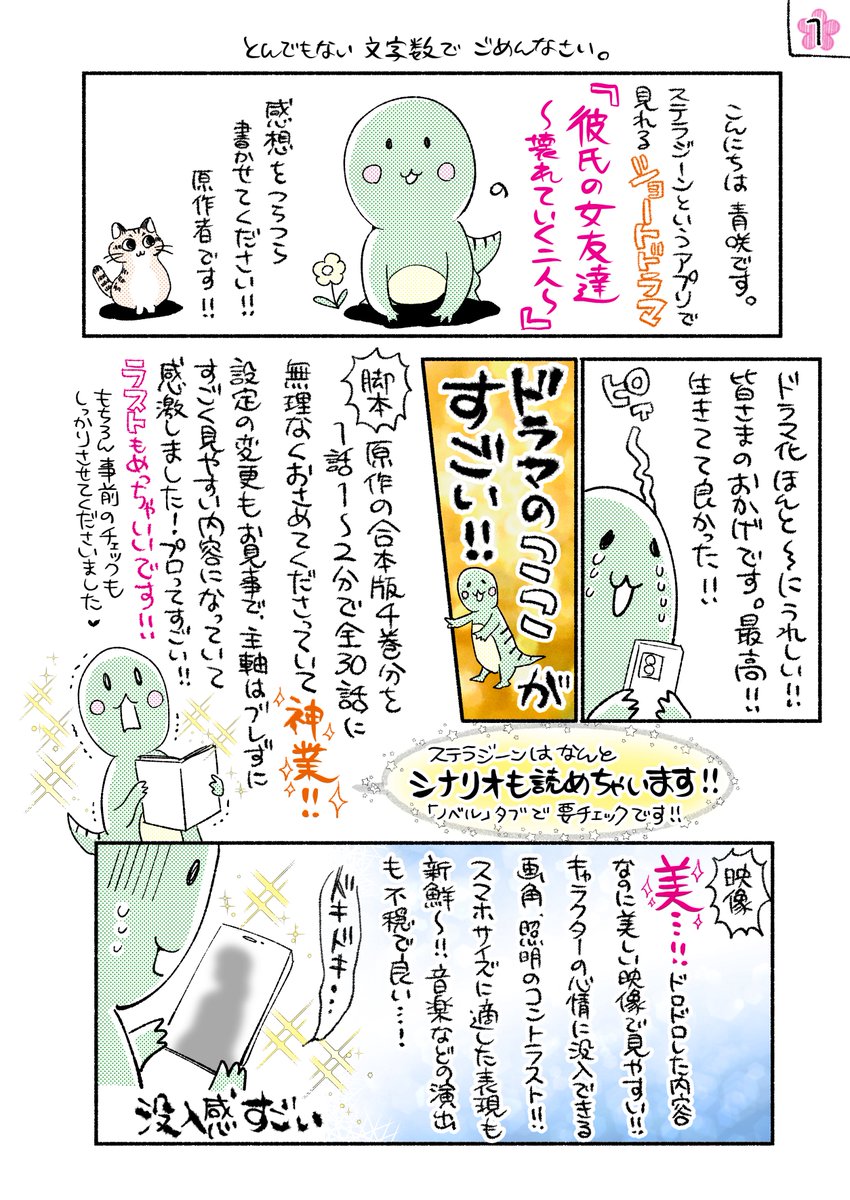 1
とんでもない文字数でごめんなさい。
こんにちは 青咲です。
ステラジーンというアプリで
見れるショートドラマ
『彼氏の女友達
〜壊れていく二人〜』
感想をつらつら
書かせてください!!
原作者です!!
ドラマ化ほんと〜にうれしい!!
皆さまのおかげです。最高!!
生きてて良かった!!
ドラマのココが
すごい!!
脚本
原作の合本版4巻分を
1話1〜2分で全30話に
無理なくおさめてくださっていて
神業!!
設定の変更もお見事で、主軸はブレずに
すごく見やすい内容になっていて
感激しました!プロってすごい!!
ラストもめっちゃいいです!!
もちろん事前のチェックも
しっかりさせてくださいました♥
ステラジーンはなんと
シナリオも読めちゃいます!!
「ノベル」タブで要チェックです!!
映像
美…!!
ドロドロした内容
なのに美しい映像で見やすい!!
キャラクターの心情に没入できる
画角、照明のコントラスト!!
スマホサイズに適した表現も
新鮮〜!!音楽などの演出
も不穏で良い…!
ドキドキ…
没入感すごい